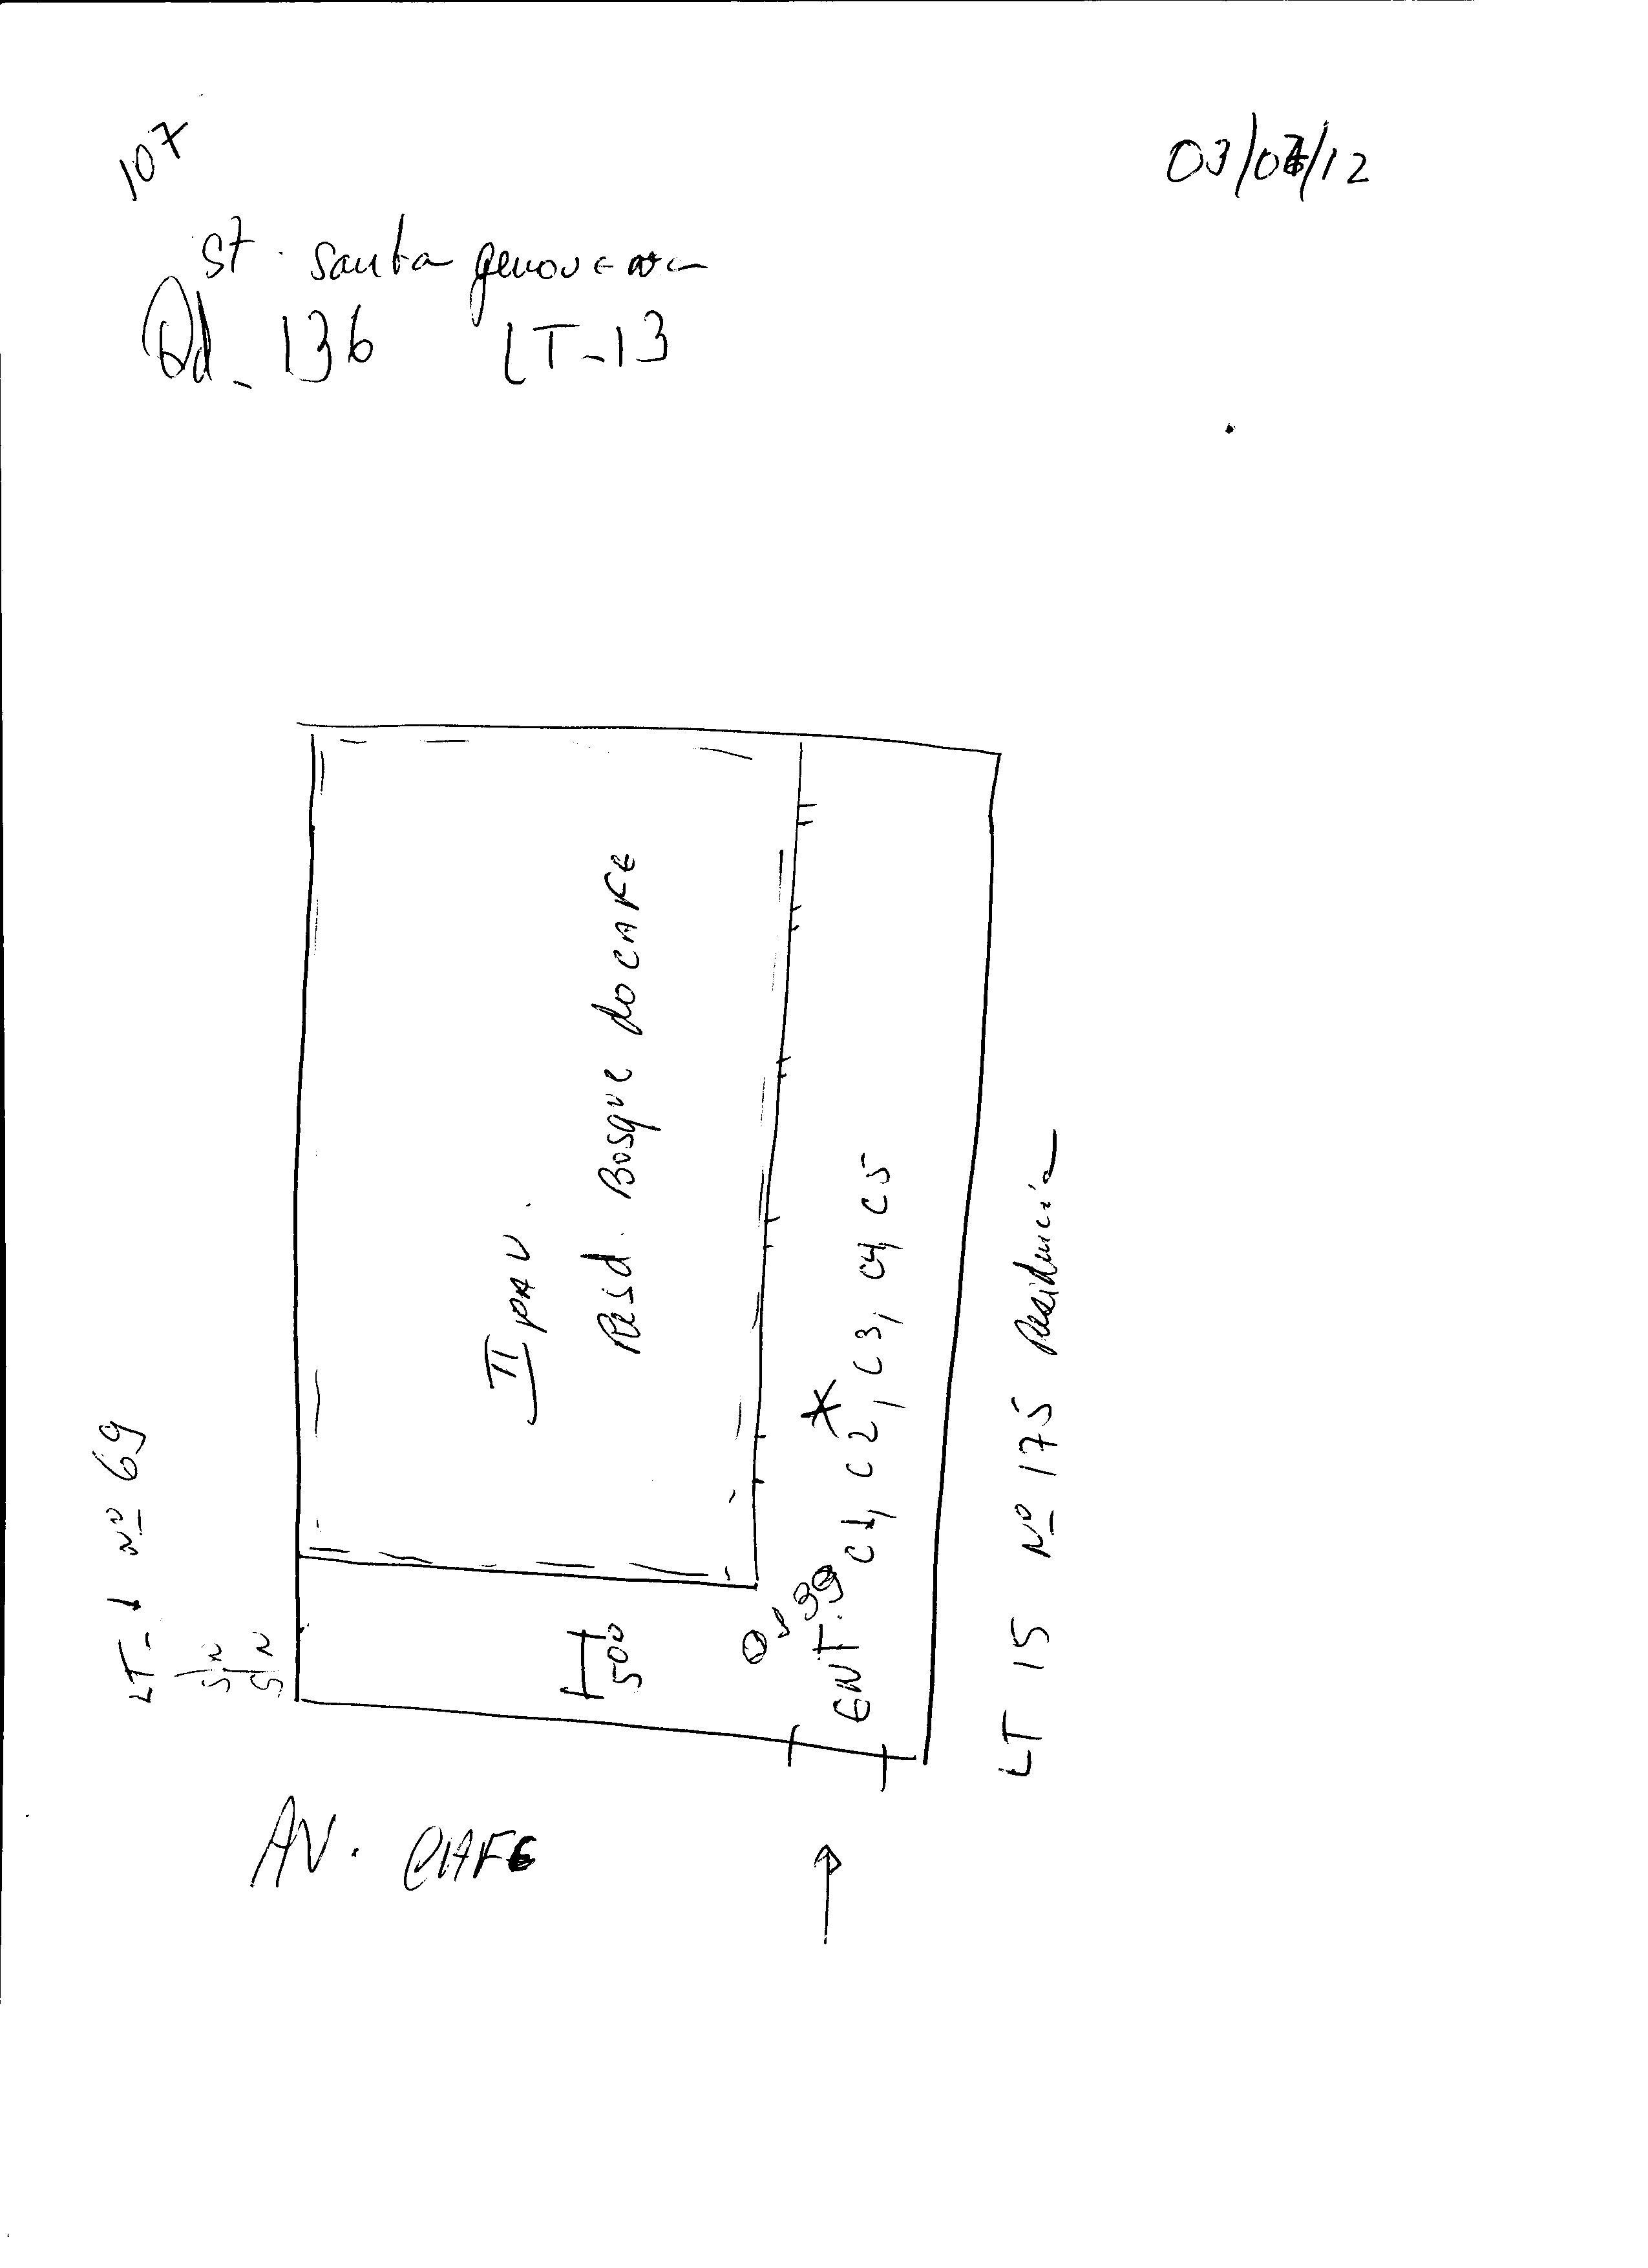 107
03/07/12
St. Santa genoveva
Qd - 136 LT - 13
II PAV.
Resid. Bosque do CAFE
LT - 1 Nº 69
S/N
S/N
500
ENT. C1, C2, C3, C4, C5
39
LT 15 Nº 175 Residencia
AV. CAFE